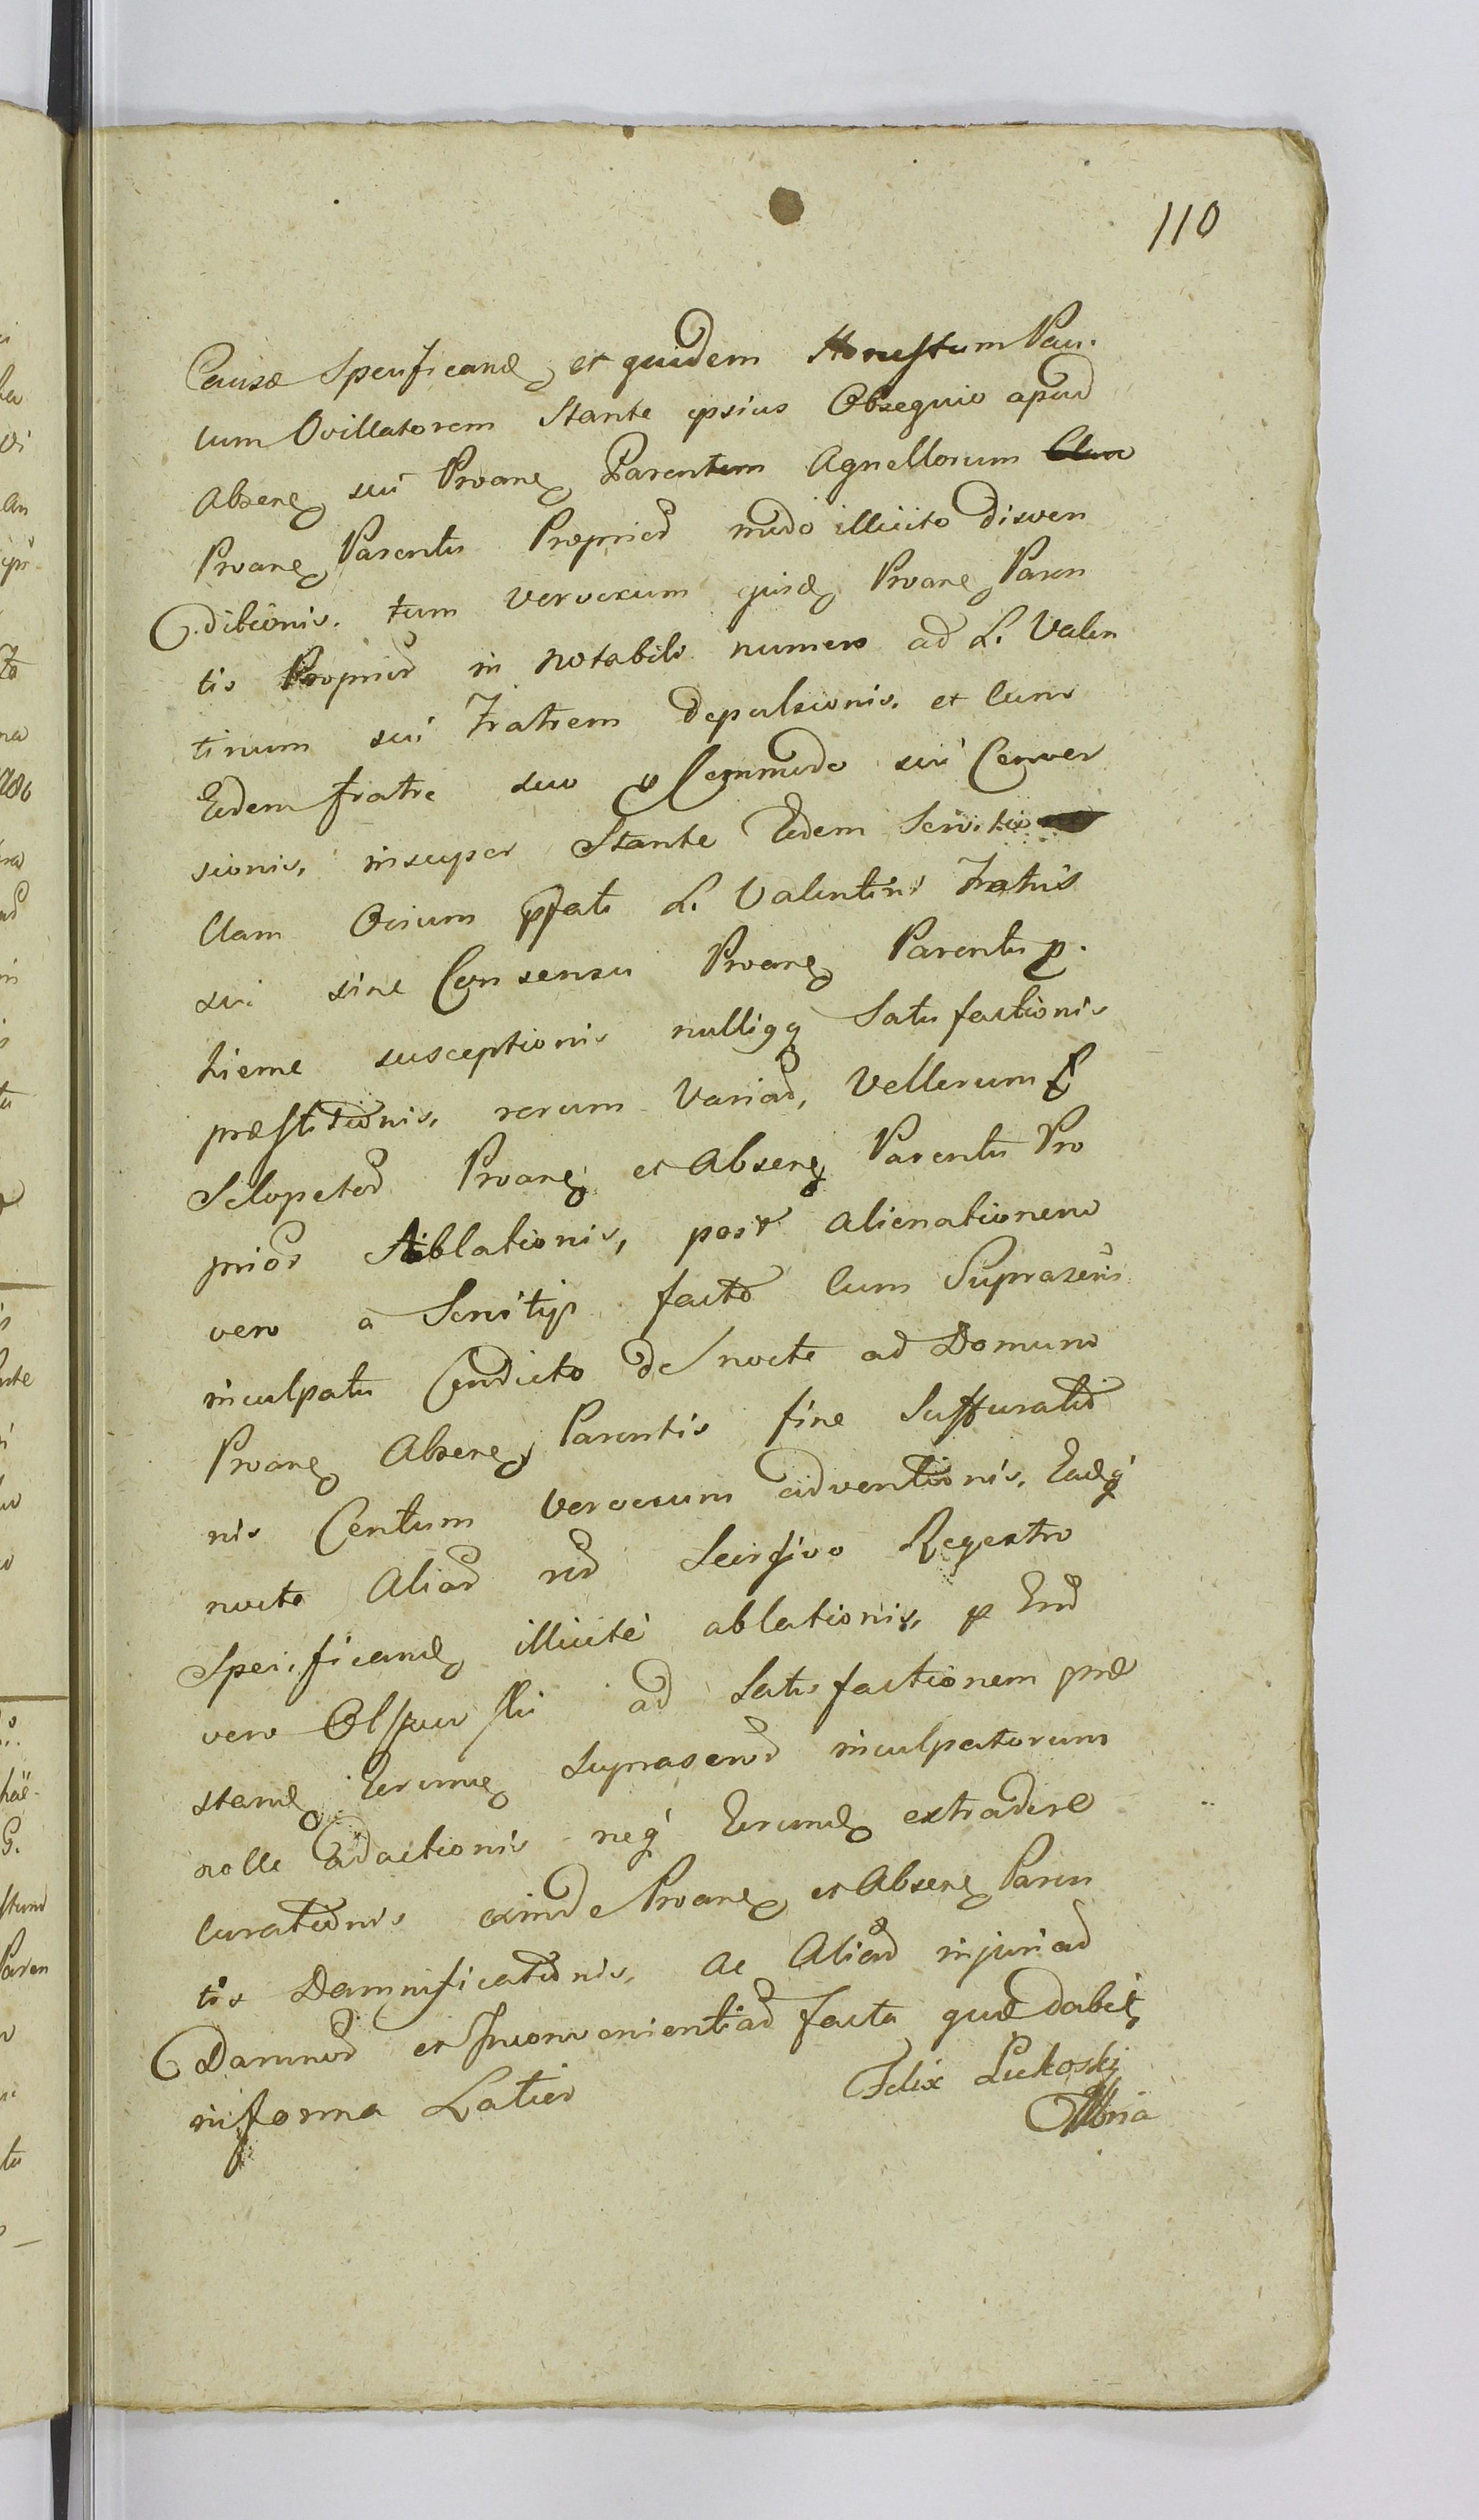 110
Causæ Specificand et quidem Honestum Pau.
lum Ovillatorem Stante ipsius Obsequio apud
Absene sui Proane Parentem Agnellorum
Proane Parentis Propriod modo illicito disven
ditionis. tum Vervecum ejusd Proane Paren
tis Propriod in notabili numero ad L. Valen
tinum sui Fratrem depulsionis. et cum
Eodem fratre suo p Commodo sui Conver
sionis, insuper Stante Eodem Servitio
Clam Ovium pfati L. Valentini Fratris
sui sine Consensu Proane Parentis p.
hieme susceptionis nulligq Satisfactionis
præstitionis, rerum Variad, Vellerum
Sclopetod Proane et Absene Parentis Pro
priod Ablationis, post alienationem
vero a Servitijs factā cum Suprasc
inculpatis Condicto de nocte ad Domum
Proane Absene Parentis fine Suffuratio
nis Centum Vervecum adventionis, Eadq
nocte Aliad red Seorsivo Regestro
Specificand illicitè ablationis, p End
vero ad Satisfactionem præ
stand Eorund suprascrod inculpatorum
nolle adactionis neq Eorund extradere
curationis exinde Proane et Absene Paren
tis Damnificationis, ac Aliad injuriad
Damnod et Inconvenientiad facta quæ dabit
in forma Latior
Felix Lukoski